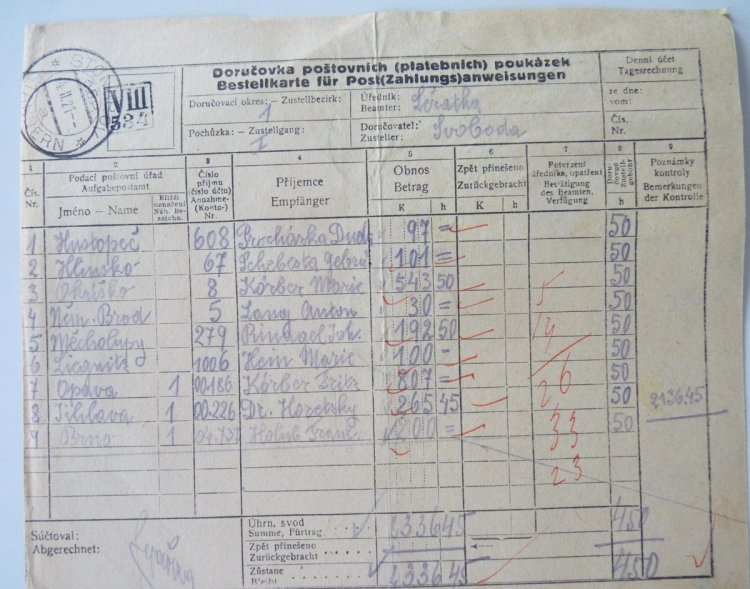 Doručovka poštovních (platebních) poukázek
Bestellkarte für Post(Zahlungs)anweisungen
Denní účet
Tagesrechnung
VIII
534
STERN
Doručovací okres: – Zustellbezirk:
1
Úředník:
Beamter:
ze dne:
vom:
Pochůzka: – Zustellgang:
I
Doručovatel:
Zusteller:
Svoboda
Čís.
Nr.
1 2 3 4 5 6 7 8 9
Čís.
Nr.
Podací poštovní úřad
Aufgabepostamt
Jméno – Name
Bližší
označení
Näh. Be-
zeichn.
Číslo
příjmu
(číslo účtu)
Annahme-
(Konto-)
Nr.
Příjemce
Empfänger
Obnos
Betrag
K h
Zpět přinešeno
Zurückgebracht
K h
Potvrzení
úředníka, opatření
Bestätigung
des Beamten,
Verfügung
Doru-
čovné
Zustell-
gebühr
h
Poznámky
kontroly
Bemerkungen
der Kontrolle
1 Hustopeč 608 97 = 50
2 Hlinsko 67 Schebesta 101 = 50
3 Okříško 8 Körber Marie 543 50 50
4 Něm. Brod 5 Lang Anton 30 = 5 50
5 Měcholupy 279 192 50 14 50
6 Liegnitz 1006 Hein Marie 100 - 50
7 Opava 1 00.186 Körber Fritz 807 = 26 50
8 Jihlava 1 00.226 Dr. 265 45 50 2136.45
9 Brno 1 Holub 200 = 33 50
23
Súčtoval:
Abgerechnet:
Úhrn, svod
Summe, Fürtrag
2336 45 450
Zpět přinešeno
Zurückgebracht
Zůstane
Bleibt
2336 45 450